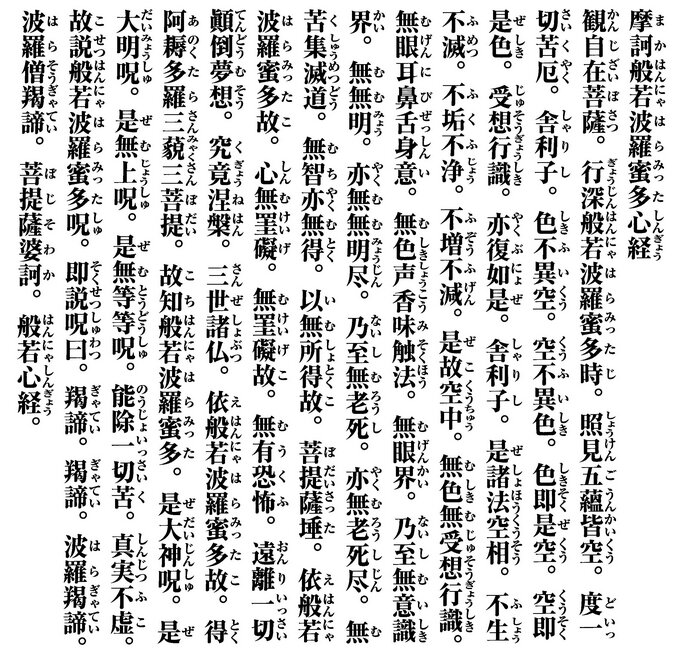 まかはんにゃはらみったしんぎょう
摩訶般若波羅蜜多心経
かんじざいぼさつ ぎょうじんはんにゃはらみったじ しょうけんごうんかいくう どいっ
観自在菩薩。行深般若波羅蜜多時。照見五蘊皆空。度一
さいくやく しゃりし しきふいくう くうふいしき しきそくぜくう くうそく
切苦厄。舎利子。色不異空。空不異色。色即是空。空即
ぜしき じゅそうぎょうしき やくぶにょぜ しゃりし ぜしょほうくうそう ふしょう
是色。受想行識。亦復如是。舎利子。是諸法空相。不生
ふめつ ふくふじょう ふぞうふげん ぜこくうちゅう むしきむじゅそうぎょうしき
不滅。不垢不浄。不増不減。是故空中。無色無受想行識。
むげんにびぜっしんい むしきしょうこうみそくほう むげんかい ないしむいしき
無眼耳鼻舌身意。無色声香味触法。無眼界。乃至無意識
かい むむみょう やくむむみょうじん ないしむろうし やくむろうしじん む
界。無無明。亦無無明尽。乃至無老死。亦無老死尽。無
くしゅうめつどう むちやくむとく いむしょとくこ ぼだいさった えはんにゃ
苦集滅道。無智亦無得。以無所得故。菩提薩埵。依般若
はらみったこ しんむけいげ むけいげこ むうくふ おんりいっさい
波羅蜜多故。心無罣礙。無罣礙故。無有恐怖。遠離一切
てんどうむそう くぎょうねはん さんぜしょぶつ えはんにゃはらみったこ とく
顛倒夢想。究竟涅槃。三世諸仏。依般若波羅蜜多故。得
あのくたらさんみゃくさんぼだい こちはんにゃはらみった ぜだいじんしゅ ぜ
阿耨多羅三藐三菩提。故知般若波羅蜜多。是大神呪。是
だいみょうしゅ ぜむじょうしゅ ぜむとうどうしゅ のうじょいっさいく しんじつふこ
大明呪。是無上呪。是無等等呪。能除一切苦。真実不虚。
こせつはんにゃはらみったしゅ そくせつしゅわつ ぎゃてい ぎゃてい はらぎゃてい
故説般若波羅蜜多呪。即説呪曰。羯諦。羯諦。波羅羯諦。
はらそうぎゃてい ぼじそわか はんにゃしんぎょう
波羅僧羯諦。菩提薩婆訶。般若心経。